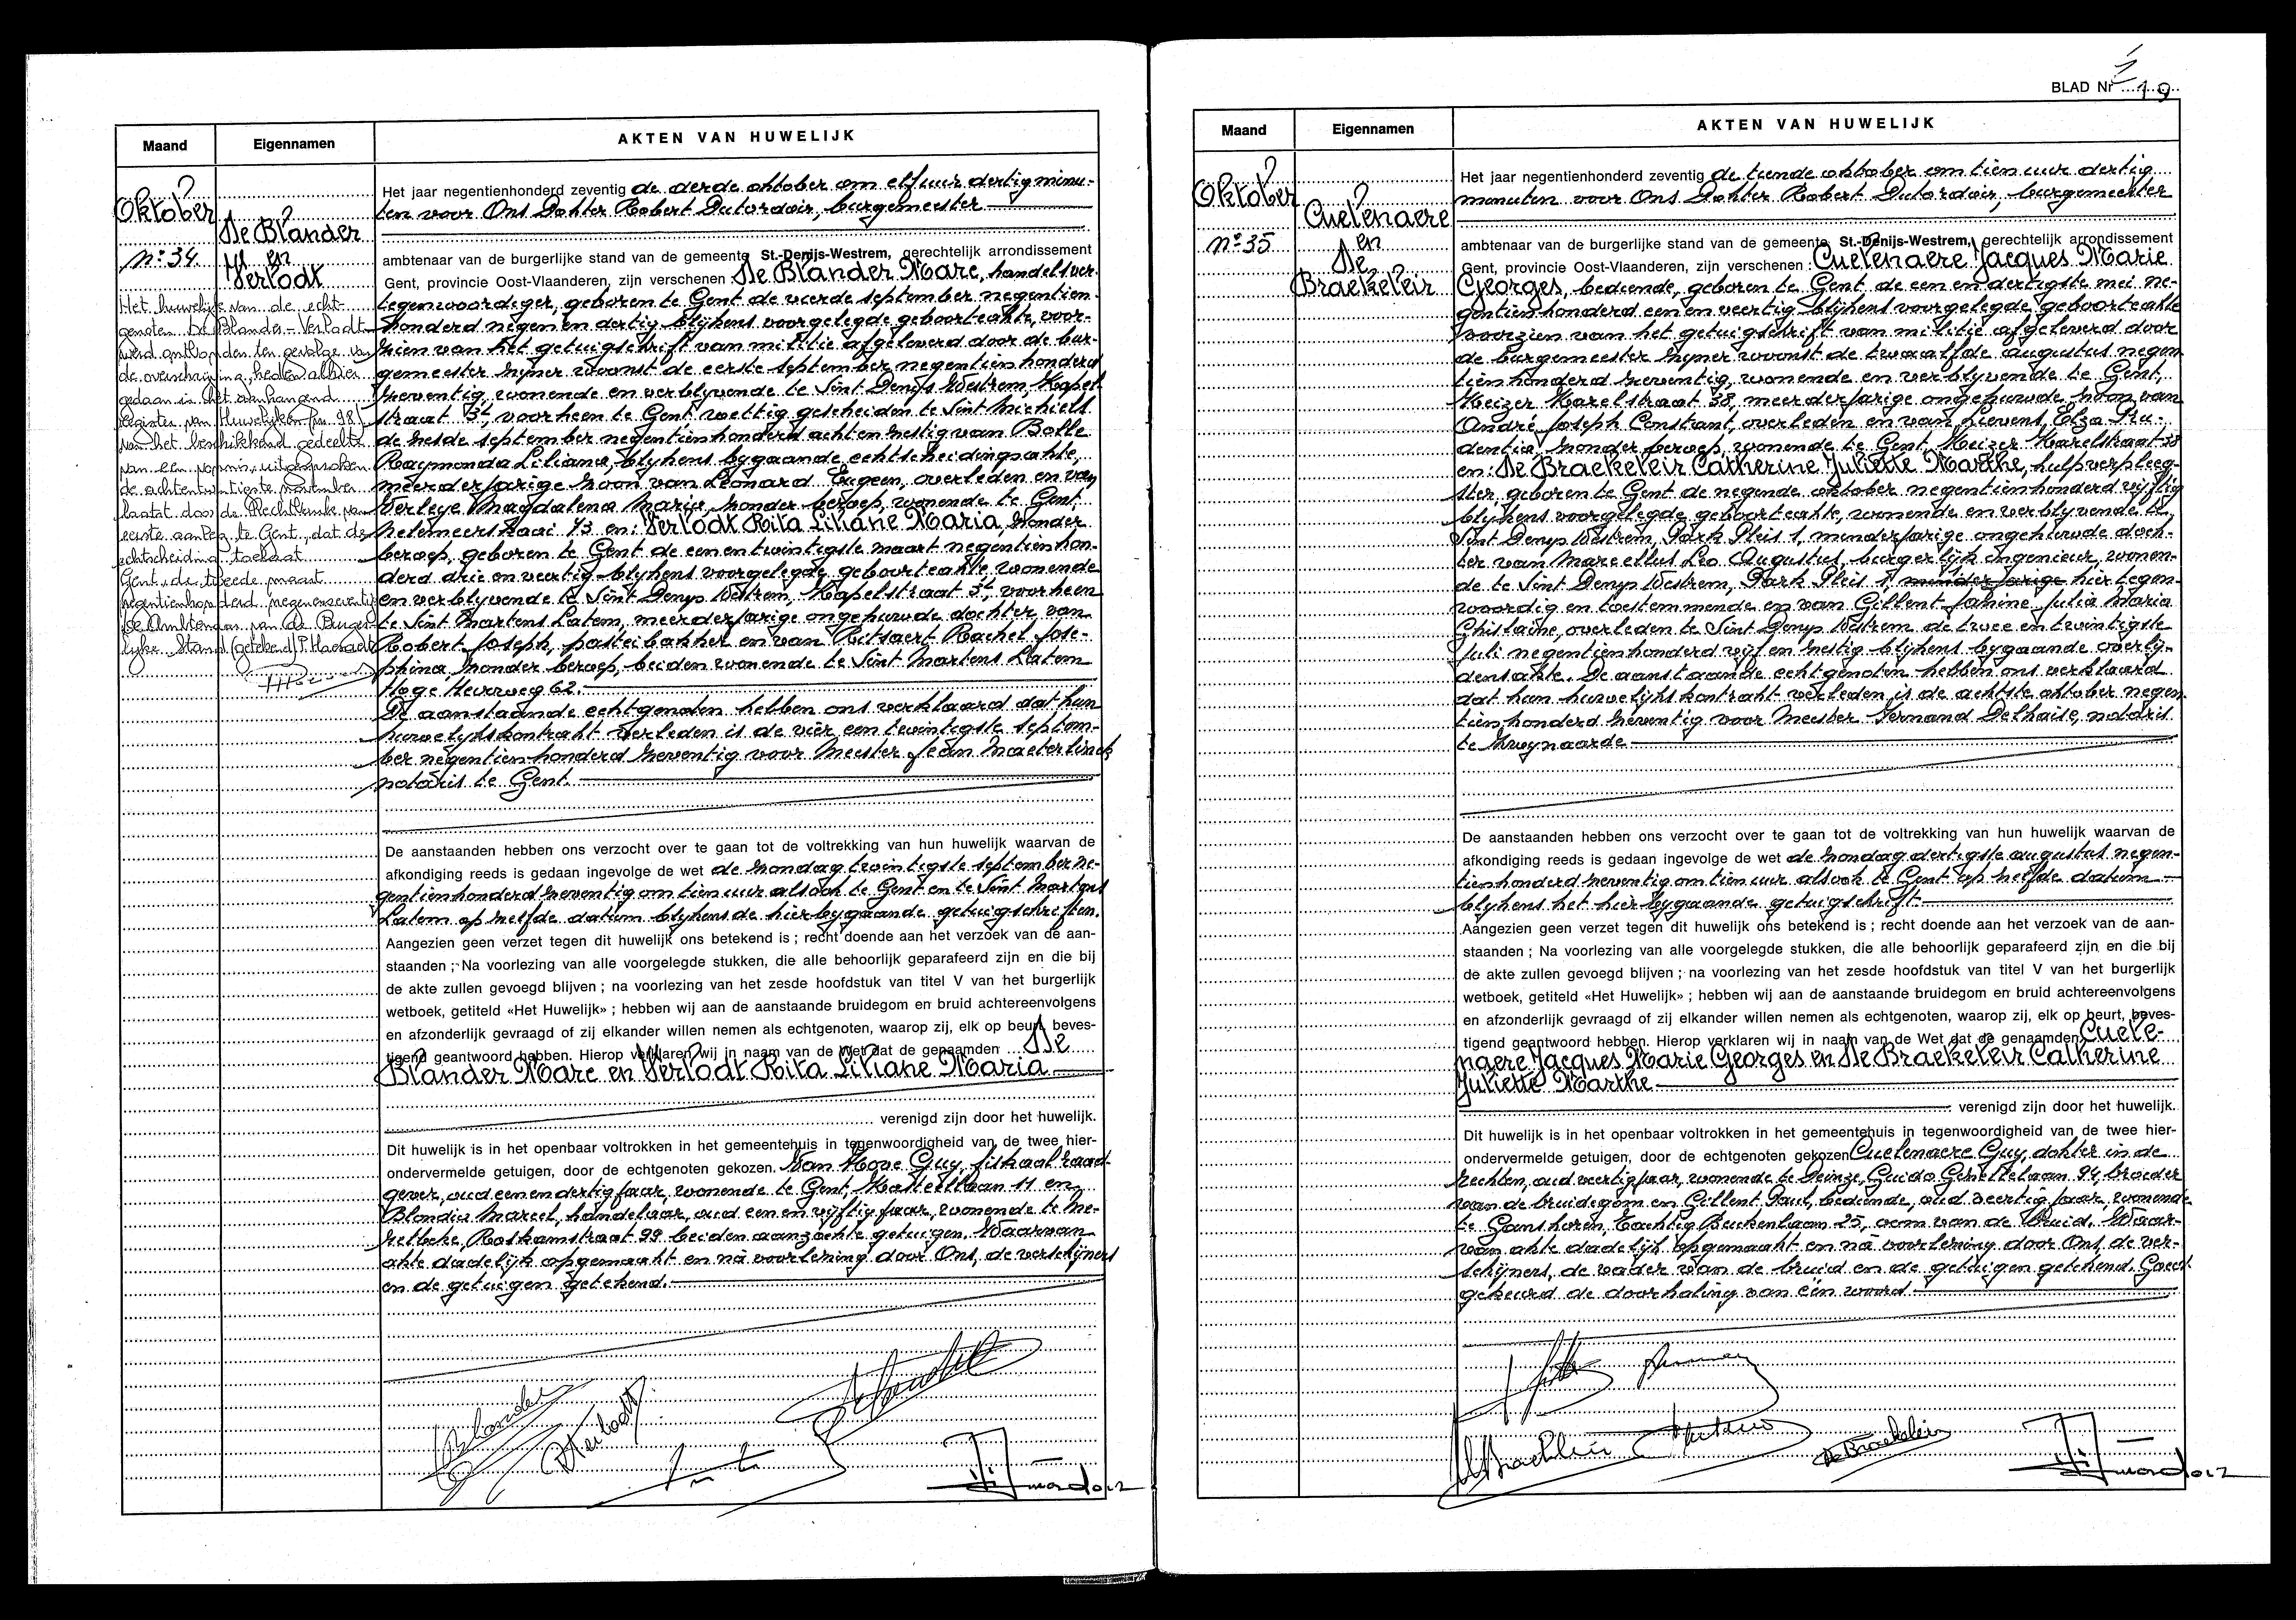 Maand
Eigennamen
AKTEN VAN HUWELIJK
Oktober
De Blander
en
Verlodt
N° 34.
Het huwelijk van de echt-
genoten De Blander - Verlodt
werd ontbonden ten gevolge van
de overschrijving, heden alhier
gedaan in het aanhangend
register van Huwelijken fn 98
van het beschikkend gedeelte
van een vonnis, uitgesproken
de achtentwintigste november
laatst door de Rechtbank van
eerste aanleg te Gent, dat de
echtscheiding toelaat
Gent, de tweede maart
negentienhonderd negenenzeventig
De Ambtenaar van de Burger-
lijke Stand (getekend)
Het jaar negentienhonderd zeventig de derde oktober om elf uur dertig minu-
ten voor Ons Dokter Robert Dutordoir, burgemeester
ambtenaar van de burgerlijke stand van de gemeente St.-Denijs-Westrem, gerechtelijk arrondissement
Gent, provincie Oost-Vlaanderen, zijn verschenen De Blander Marc, handelsver-
tegenwoordiger, geboren te Gent de vierde september negentien-
honderd negen en dertig blijkens voorgelegde geboorteakte, voor-
zien van het getuigschrift van militie afgeleverd door de bur-
gemeester zijner woonst de eerste september negentienhonderd
zeventig, wonende en verblijvende te Sint Denys Westrem, Kapel-
straat 3, voorheen te Gent wettig gescheiden te Sint Michiels
de zesde september negentienhonderd acht en zestig van Bolle
Raymonda Liliana, blijkens bygaande echtscheidingsakte,
meerderjarige zoon van Leonard Eugeen, overleden en van
Verleye Magdalena Maria, zonder beroep, wonende te Gent,
Neermeerskaai 73 en: Verlodt Rita Liliane Maria, zonder
beroep, geboren te Gent de een en twintigste maart negentienhon-
derd drie en veertig blijkens voorgelegde geboorteakte wonende
en verblyvende te Sint Denys Westrem, Kapelstraat 3, voorheen
te Sint Martens Latem, meerderjarige ongehuwde dochter van
Robert Joseph, pasteibakker en van Ritsaert Rachel Jose-
phina, zonder beroep, beiden wonende te Sint Martens Latem
Hoge Heirweg 62.
De aanstaande echtgenoten hebben ons verklaard dat hun
huwelijkskontrakt verleden is de vier een twintigste septem-
ber negentienhonderd zeventig voor Meester Jean Maeterlinck
notaris te Gent.
De aanstaanden hebben ons verzocht over te gaan tot de voltrekking van hun huwelijk waarvan de
afkondiging reeds is gedaan ingevolge de wet de zondag twintigste september ne-
gentienhonderd zeventig om tien uur alsook te Gent en te Sint Martens
Latem op zelfde datum blijkens de hierbygaande getuigschriften.
Aangezien geen verzet tegen dit huwelijk ons betekend is ; recht doende aan het verzoek van de aan-
staanden ; Na voorlezing van alle voorgelegde stukken, die alle behoorlijk geparafeerd zijn en die bij
de akte zullen gevoegd blijven ; na voorlezing van het zesde hoofdstuk van titel V van het burgerlijk
wetboek, getiteld «Het Huwelijk» ; hebben wij aan de aanstaande bruidegom en bruid achtereenvolgens
en afzonderlijk gevraagd of zij elkander willen nemen als echtgenoten, waarop zij, elk op beurt, beves-
tigend geantwoord hebben. Hierop verklaren wij in naam van de Wet dat de genaamden De
Blander Marc en Verlodt Rita Liliane Maria
verenigd zijn door het huwelijk.
Dit huwelijk is in het openbaar voltrokken in het gemeentehuis in tegenwoordigheid van de twee hier-
ondervermelde getuigen, door de echtgenoten gekozen. Van Hove Guy, fiskaal raad-
gever, oud een en dertig jaar, wonende te Gent, 11 en
Blondia Marcel, handelaar, oud een en vijftig jaar, wonende te Me-
relbeke, Roskamstraat 99 beiden aanzochte getuigen. Waarvan
akte dadelijk opgemaakt en na voorlezing door Ons, de verschijners
en de getuigen getekend.
BLAD Nr 19
Maand
Eigennamen
AKTEN VAN HUWELIJK
Oktober
Cuelenaere
en
De
Braekeleir
N° 35
Het jaar negentienhonderd zeventig de tiende oktober om tien uur dertig
minuten voor Ons Dokter Robert Dutordoir, burgemeester
ambtenaar van de burgerlijke stand van de gemeente St.-Denijs-Westrem, gerechtelijk arrondissement
Gent, provincie Oost-Vlaanderen, zijn verschenen : Cuelenaere Jacques Marie
Georges, bediende, geboren te Gent de een en dertigste mei ne-
gentienhonderd een en veertig blijkens voorgelegde geboorteakte
voorzien van het getuigschrift van militie afgeleverd door
de burgemeester zijner woonst de twaalfde augustus negen-
tienhonderd zeventig, wonende en verblyvende te Gent,
Keizer Karelstraat 38, meerderjarige ongehuwde zoon van
André Joseph Constant, overleden en van Lievens Elza Pru-
dentia, zonder beroep, wonende te Gent Keizer Karelstraat 38
en: De Braekeleir Catherine Juliette Marthe, hulpverpleeg-
ster, geboren te Gent de negende oktober negentienhonderd vijftig
blijkens voorgelegde geboorteakte, wonende en verblyvende te
Sint Denys Westrem, Park Pleis 1, minderjarige ongehuwde doch-
ter van Marcellus Leo Augustus, burgerlijk ingenieur, wonen-
de te Sint Denys Westrem, Park Pleis 1, minderjarige hier tegen-
woordig en toestemmende en van Gillent Janine Julia Maria
Ghislaine, overleden te Sint Denys Westrem de twee en twintigste
juli negentienhonderd vijf en zestig blijkens bygaande overly-
densakte. De aanstaande echtgenoten hebben ons verklaard
dat hun huwelijkskontrakt verleden is de achtste oktober negen-
tienhonderd zeventig voor Meester Fernand Delhaise, notaris
te Zwynaarde
De aanstaanden hebben ons verzocht over te gaan tot de voltrekking van hun huwelijk waarvan de
afkondiging reeds is gedaan ingevolge de wet de zondag dertigste augustus negen-
tienhonderd zeventig om tien uur alsook te Gent op zelfde datum
blijkens het hierbygaande getuigschrift
Aangezien geen verzet tegen dit huwelijk ons betekend is ; recht doende aan het verzoek van de aan-
staanden ; Na voorlezing van alle voorgelegde stukken, die alle behoorlijk geparafeerd zijn en die bij
de akte zullen gevoegd blijven ; na voorlezing van het zesde hoofdstuk van titel V van het burgerlijk
wetboek, getiteld «Het Huwelijk» ; hebben wij aan de aanstaande bruidegom en bruid achtereenvolgens
en afzonderlijk gevraagd of zij elkander willen nemen als echtgenoten, waarop zij, elk op beurt, beves-
tigend geantwoord hebben. Hierop verklaren wij in naam van de Wet dat de genaamden Cuele-
naere Jacques Marie Georges en De Braekeleir Catherine
Juliette Marthe
verenigd zijn door het huwelijk.
Dit huwelijk is in het openbaar voltrokken in het gemeentehuis in tegenwoordigheid van de twee hier-
ondervermelde getuigen, door de echtgenoten gekozen Cuelenaere Guy, dokter in de
rechten, oud veertig jaar, wonende te Deinze, Guido Gezellelaan 94, broeder
van de bruidegom en Gillent Paul, bediende, oud veertig jaar, wonende
te Ganshoren, Tachtig Beukenlaan 25, oom van de bruid. Waar-
van akte dadelijk opgemaakt en na voorlezing door Ons, de ver-
schijners, de vader van de bruid en de getuigen getekend. Goed-
gekeurd de doorhaling van één woord